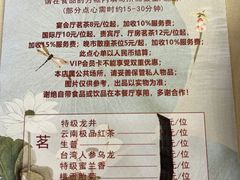 (部分点心需时约15-30分钟)
宴会厅茗茶8元/位起，加收10%服务费；
国际厅10元/位起，贵宾厅、厅房茗茶12元/位起，
加收15%服务费；晚市散座茶位5元/位起，加收10%服务费；
此点心单以人民币结算；
VIP会员卡不能享受双重优惠；
本店属公共场所，请妥善保管私人物品；
多谢惠顾，如有更改，恕不另行通知；
谢绝自带食品或饮品在本餐厅享用，多谢合作！
茗
特级龙井
云南极品红茶
生普
台湾人参乌龙
特级蜜兰香
元/位
元/位
元/位
元/位
元/位